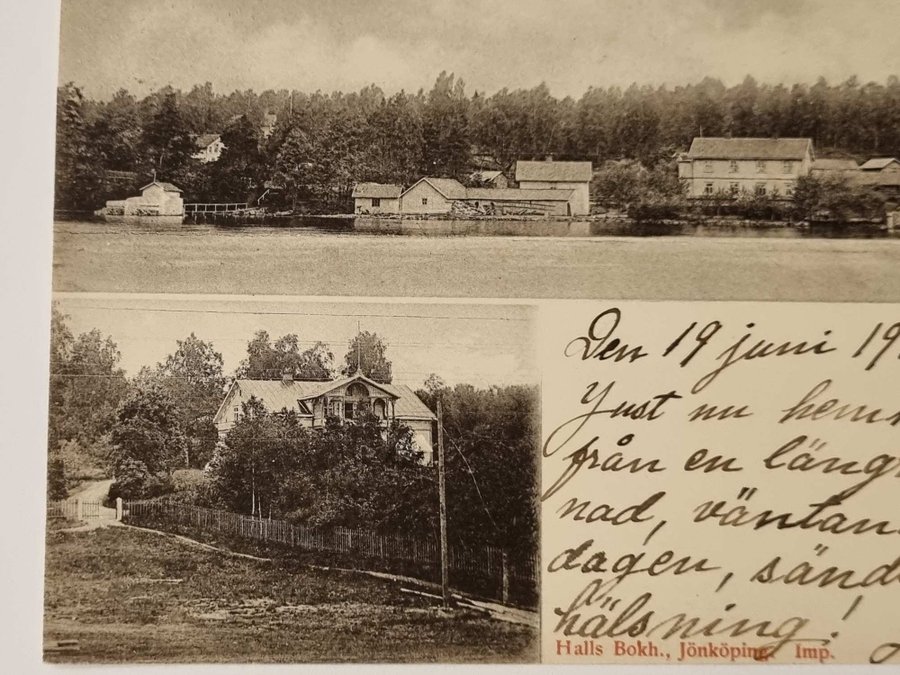 Den 19 juni 19
Just nu hem
från en läng
nad, väntan
dagen, sänd
hälsning!
Halls Bokh., Jönköping. Imp.